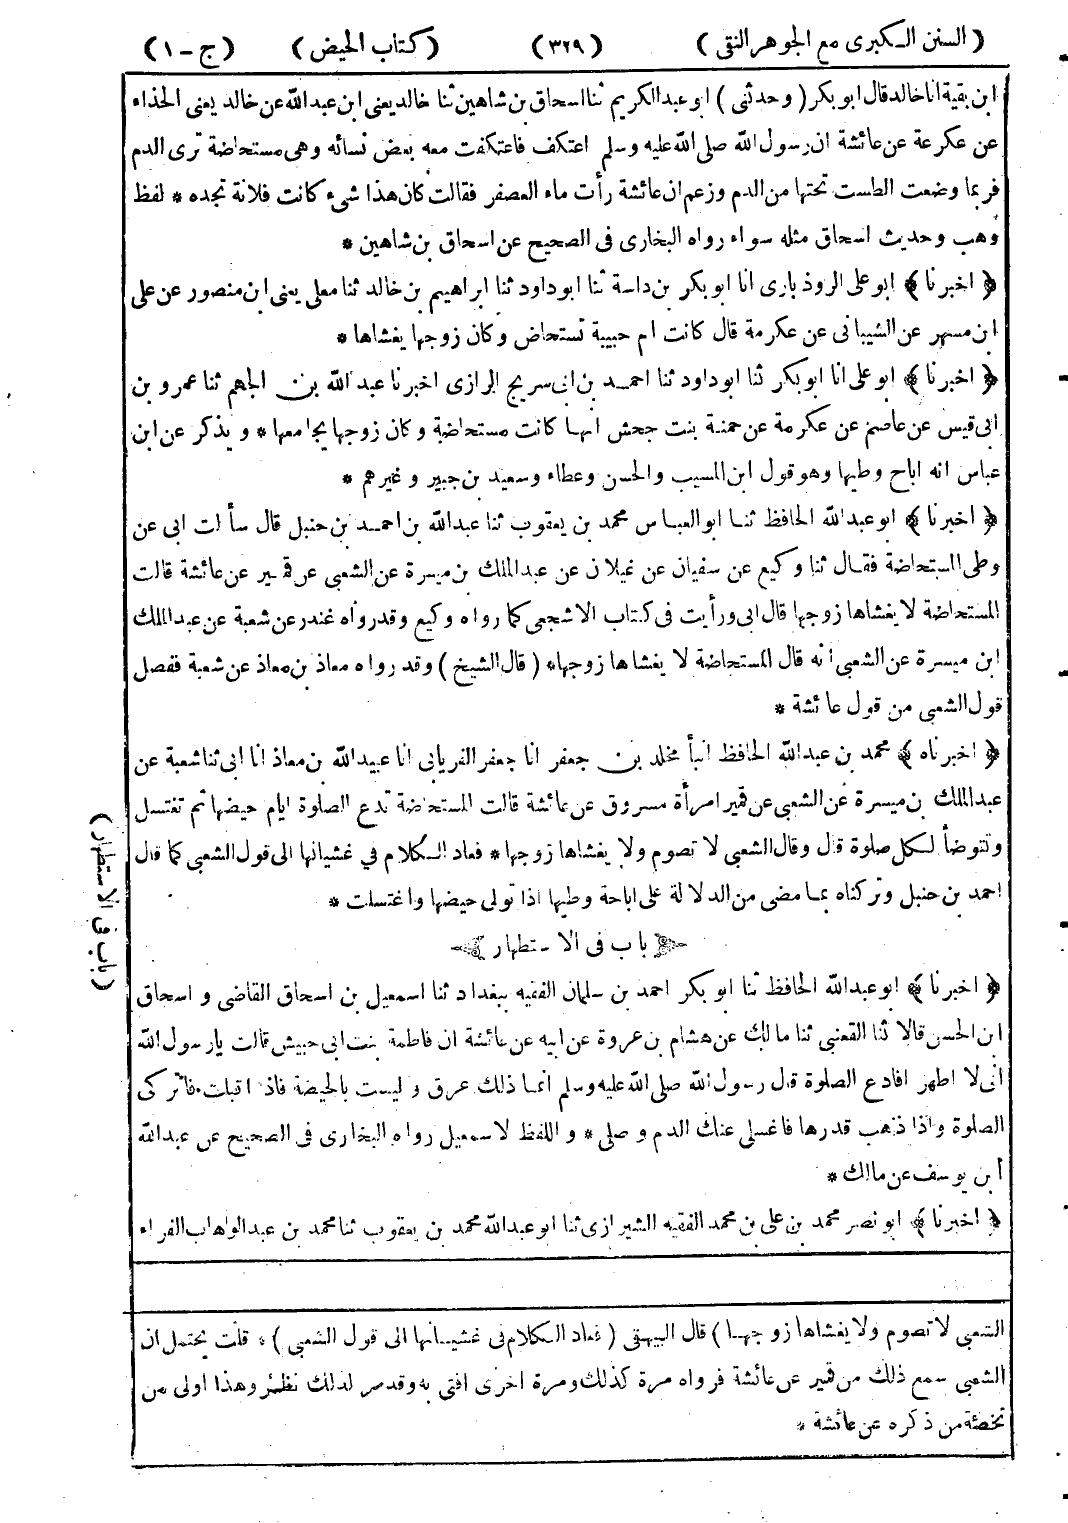 ( السنن الكبرى مع الجوهر النقى ) ( ٣٢٩ ) ( كتاب الحيض ) ( ج - ١ )
ابن بقية انا خالد قال ابو بكر ( وحدثنى ) ابو عبد الكريم ثنا اسحاق بن شاهين ثنا خالد يعنى ابن عبد الله عن خالد يعنى الحذاء
عن عكرمة عن عائشة ان رسول الله صلى الله عليه وسلم اعتكف فاعتكفت معه بعض نسائه وهى مستحاضة ترى الدم
فربما وضعت الطست تحتها من الدم وزعم ان عائشة رأت ماء العصفر فقالت كان هذا شىء كانت فلانة تجده * لفظ
وهب وحديث اسحاق مثله سواء رواه البخارى فى الصحيح عن اسحاق بن شاهين *
﴿ اخبرنا ﴾ ابو على الروذبارى انا ابو بكر بن داسة ثنا ابو داود ثنا ابراهيم بن خالد ثنا معلى يعنى ابن منصور عن على
ابن مسهر عن الشيبانى عن عكرمة قال كانت ام حبيبة تستحاض وكان زوجها يغشاها *
﴿ اخبرنا ﴾ ابو على انا ابو بكر ثنا ابو داود ثنا احمد بن ابى سريج الرازى اخبرنا عبد الله بن الجهم ثنا عمرو بن
ابى قيس عن عاصم عن عكرمة عن حمنة بنت جحش انها كانت مستحاضة وكان زوجها يجامعها * ويذكر عن ابن
عباس انه اباح وطيها وهو قول ابن المسيب والحسن وعطاء وسعيد بن جبير وغيرهم *
﴿ اخبرنا ﴾ ابو عبد الله الحافظ ثنا ابو العباس محمد بن يعقوب ثنا عبد الله بن احمد بن حنبل قال سألت ابى عن
وطى المستحاضة فقال ثنا وكيع عن سفيان عن غيلان عن عبد الملك بن ميسرة عن الشعبى عن قمير عن عائشة قالت
المستحاضة لا يغشاها زوجها قال ابى ورأيت فى كتاب الاشجعى كما رواه وكيع وقد رواه غندر عن شعبة عن عبد الملك
ابن ميسرة عن الشعبى انه قال المستحاضة لا يغشاها زوجها * ( قال الشيخ ) وقد رواه معاذ بن معاذ عن شعبة ففصل
قول الشعبى من قول عائشة *
﴿ اخبرناه ﴾ محمد بن عبد الله الحافظ انبأ مخلد بن جعفر انا جعفر الفريابى انا عبيد الله بن معاذ انا ابى ثنا شعبة عن
عبد الملك بن ميسرة عن الشعبى عن قمير امرأة مسروق عن عائشة قالت المستحاضة تدع الصلوة ايام حيضها ثم تغتسل
وتتوضأ لكل صلوة قال وقال الشعبى لا تصوم ولا يغشاها زوجها * فعاد الكلام في غشيانها الى قول الشعبى كما قال
احمد بن حنبل وتركناه بما مضى من الدلالة على اباحة وطيها اذا تولى حيضها واغتسلت *
﴿ باب فى الاستظهار ﴾
( باب فى الاستظهار )
﴿ اخبرنا ﴾ ابو عبد الله الحافظ ثنا ابو بكر احمد بن سلمان الفقيه ببغداد ثنا اسمعيل بن اسحاق القاضى و اسحاق
ابن الحسن قالا ثنا القعنبى ثنا مالك عن هشام بن عروة عن ابيه عن عائشة ان فاطمة بنت ابى حبيش قالت يا رسول الله
انى لا اطهر افادع الصلوة قال رسول الله صلى الله عليه وسلم انما ذلك عرق و ليست بالحيضة فاذا اقبلت فاتركى
الصلوة واذا ذهب قدرها فاغسلى عنك الدم و صلى * و اللفظ لاسمعيل رواه البخارى فى الصحيح عن عبد الله
أبن يوسف عن مالك *
﴿ اخبرنا ﴾ ابو نصر محمد بن على بن محمد الفقيه الشيرازى ثنا ابو عبد الله محمد بن يعقوب ثنا محمد بن عبد الوهاب الفراء
الشعبى لا تصوم ولا يغشاها زوجها ) قال البيهقى ( فعاد الكلام فى غشيانها الى قول الشعبى ) * قلت يحتمل ان
الشعبى سمع ذلك من قمير عن عائشة فرواه مرة كذلك ومرة اخرى افتى به وقد مر لذلك نظائر وهذا اولى من
تخطئة من ذكره عن عائشة *